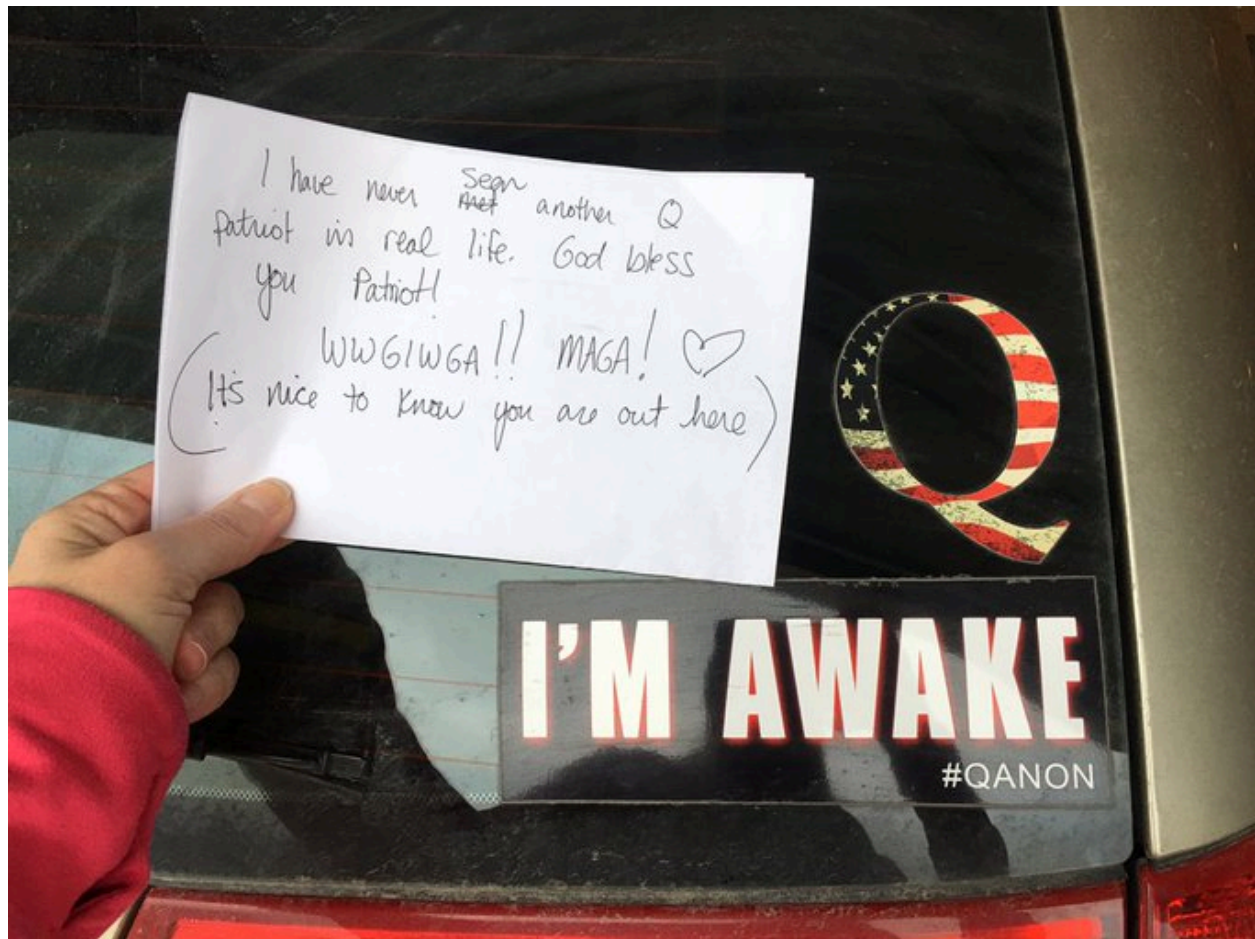 I have never seen another Q
Patriot in real life. God bless
you Patriot!
WWG1WGA!! MAGA! ♡
(It's nice to know you are out here)
Q
I'M AWAKE
#QANON